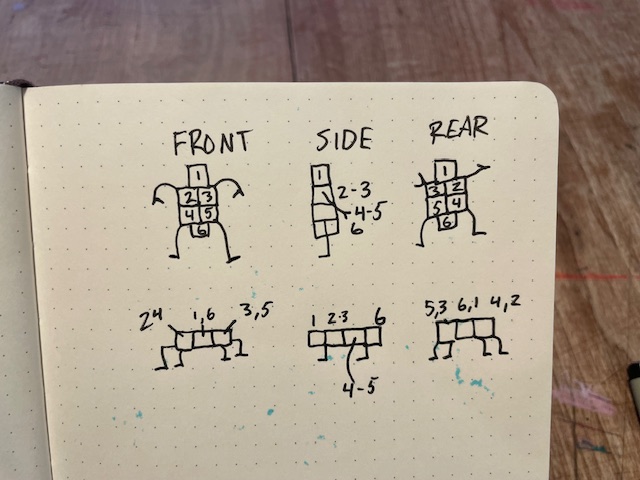 FRONT SIDE REAR
1 1 1
2 3 2-3 3 2
4 5 4-5 5 4
6 6 6
24 1,6 3,5 1 2-3 6 5,3 6,1 4,2
4-5